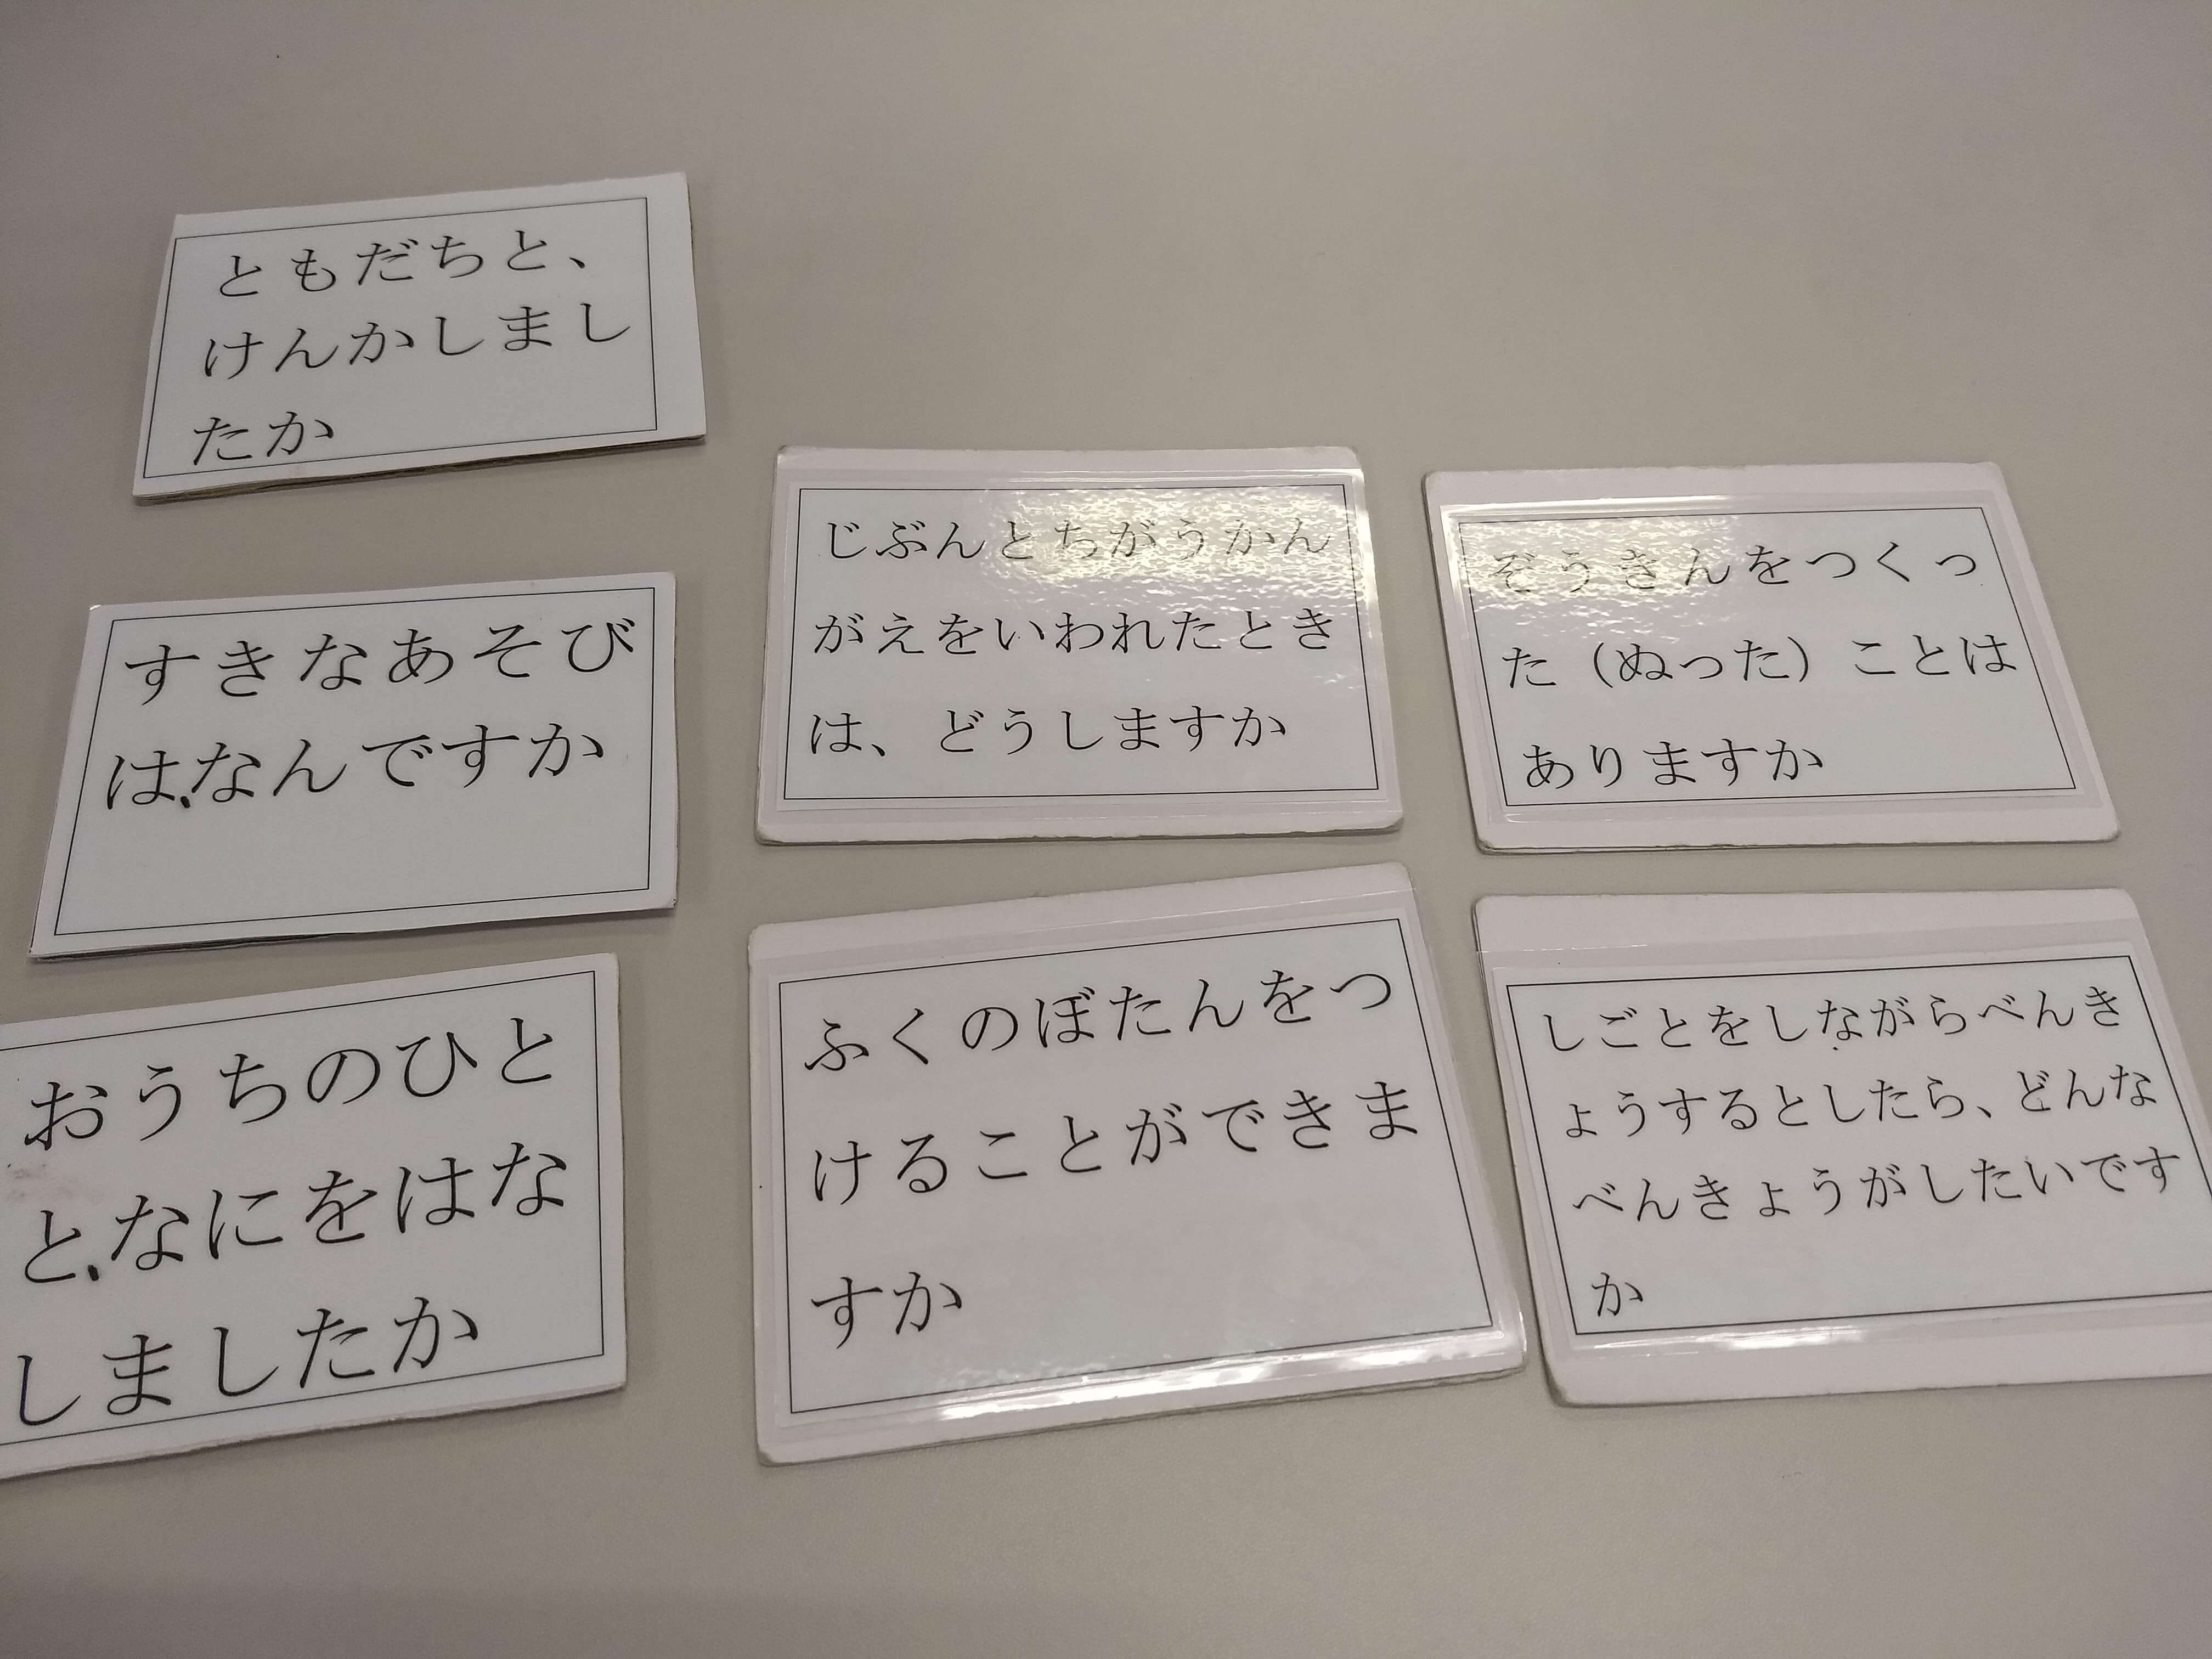 ともだちと、
けんかしまし
たか
すきなあそび
は、なんですか
おうちのひと
と、なにをはな
しましたか
じぶんとちがうかん
がえをいわれたとき
は、どうしますか
ふくのぼたんをつ
けることができま
すか
ぞうきんをつくっ
た（ぬった）ことは
ありますか
しごとをしながらべんき
ょうするとしたら、どんな
べんきょうがしたいです
か